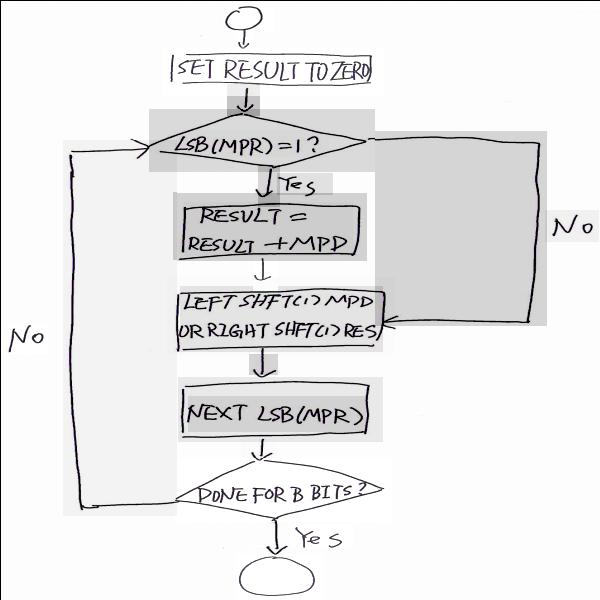 SET RESULT TO ZERO
LSB(MPR)=1?
Yes
RESULT =
RESULT + MPD
No
LEFT SHFT(1) MPD
OR RIGHT SHFT(1) RES
No
NEXT LSB(MPR)
DONE FOR B BITS?
Yes